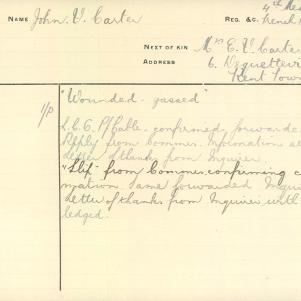 NAME John. V. Carter
REG. &c. 4th
NEXT OF KIN Mrs E. V. Carter
ADDRESS 6.
Kent Town
"Wounded - gassed"
confirmed forwarde
Reply from Commrs. Information
letter of thanks from Inquirer.
"Slip" from Commrs. confirming c
mation. Same forwarded Inqui
Letter of thanks from Inquirer with
ledged.